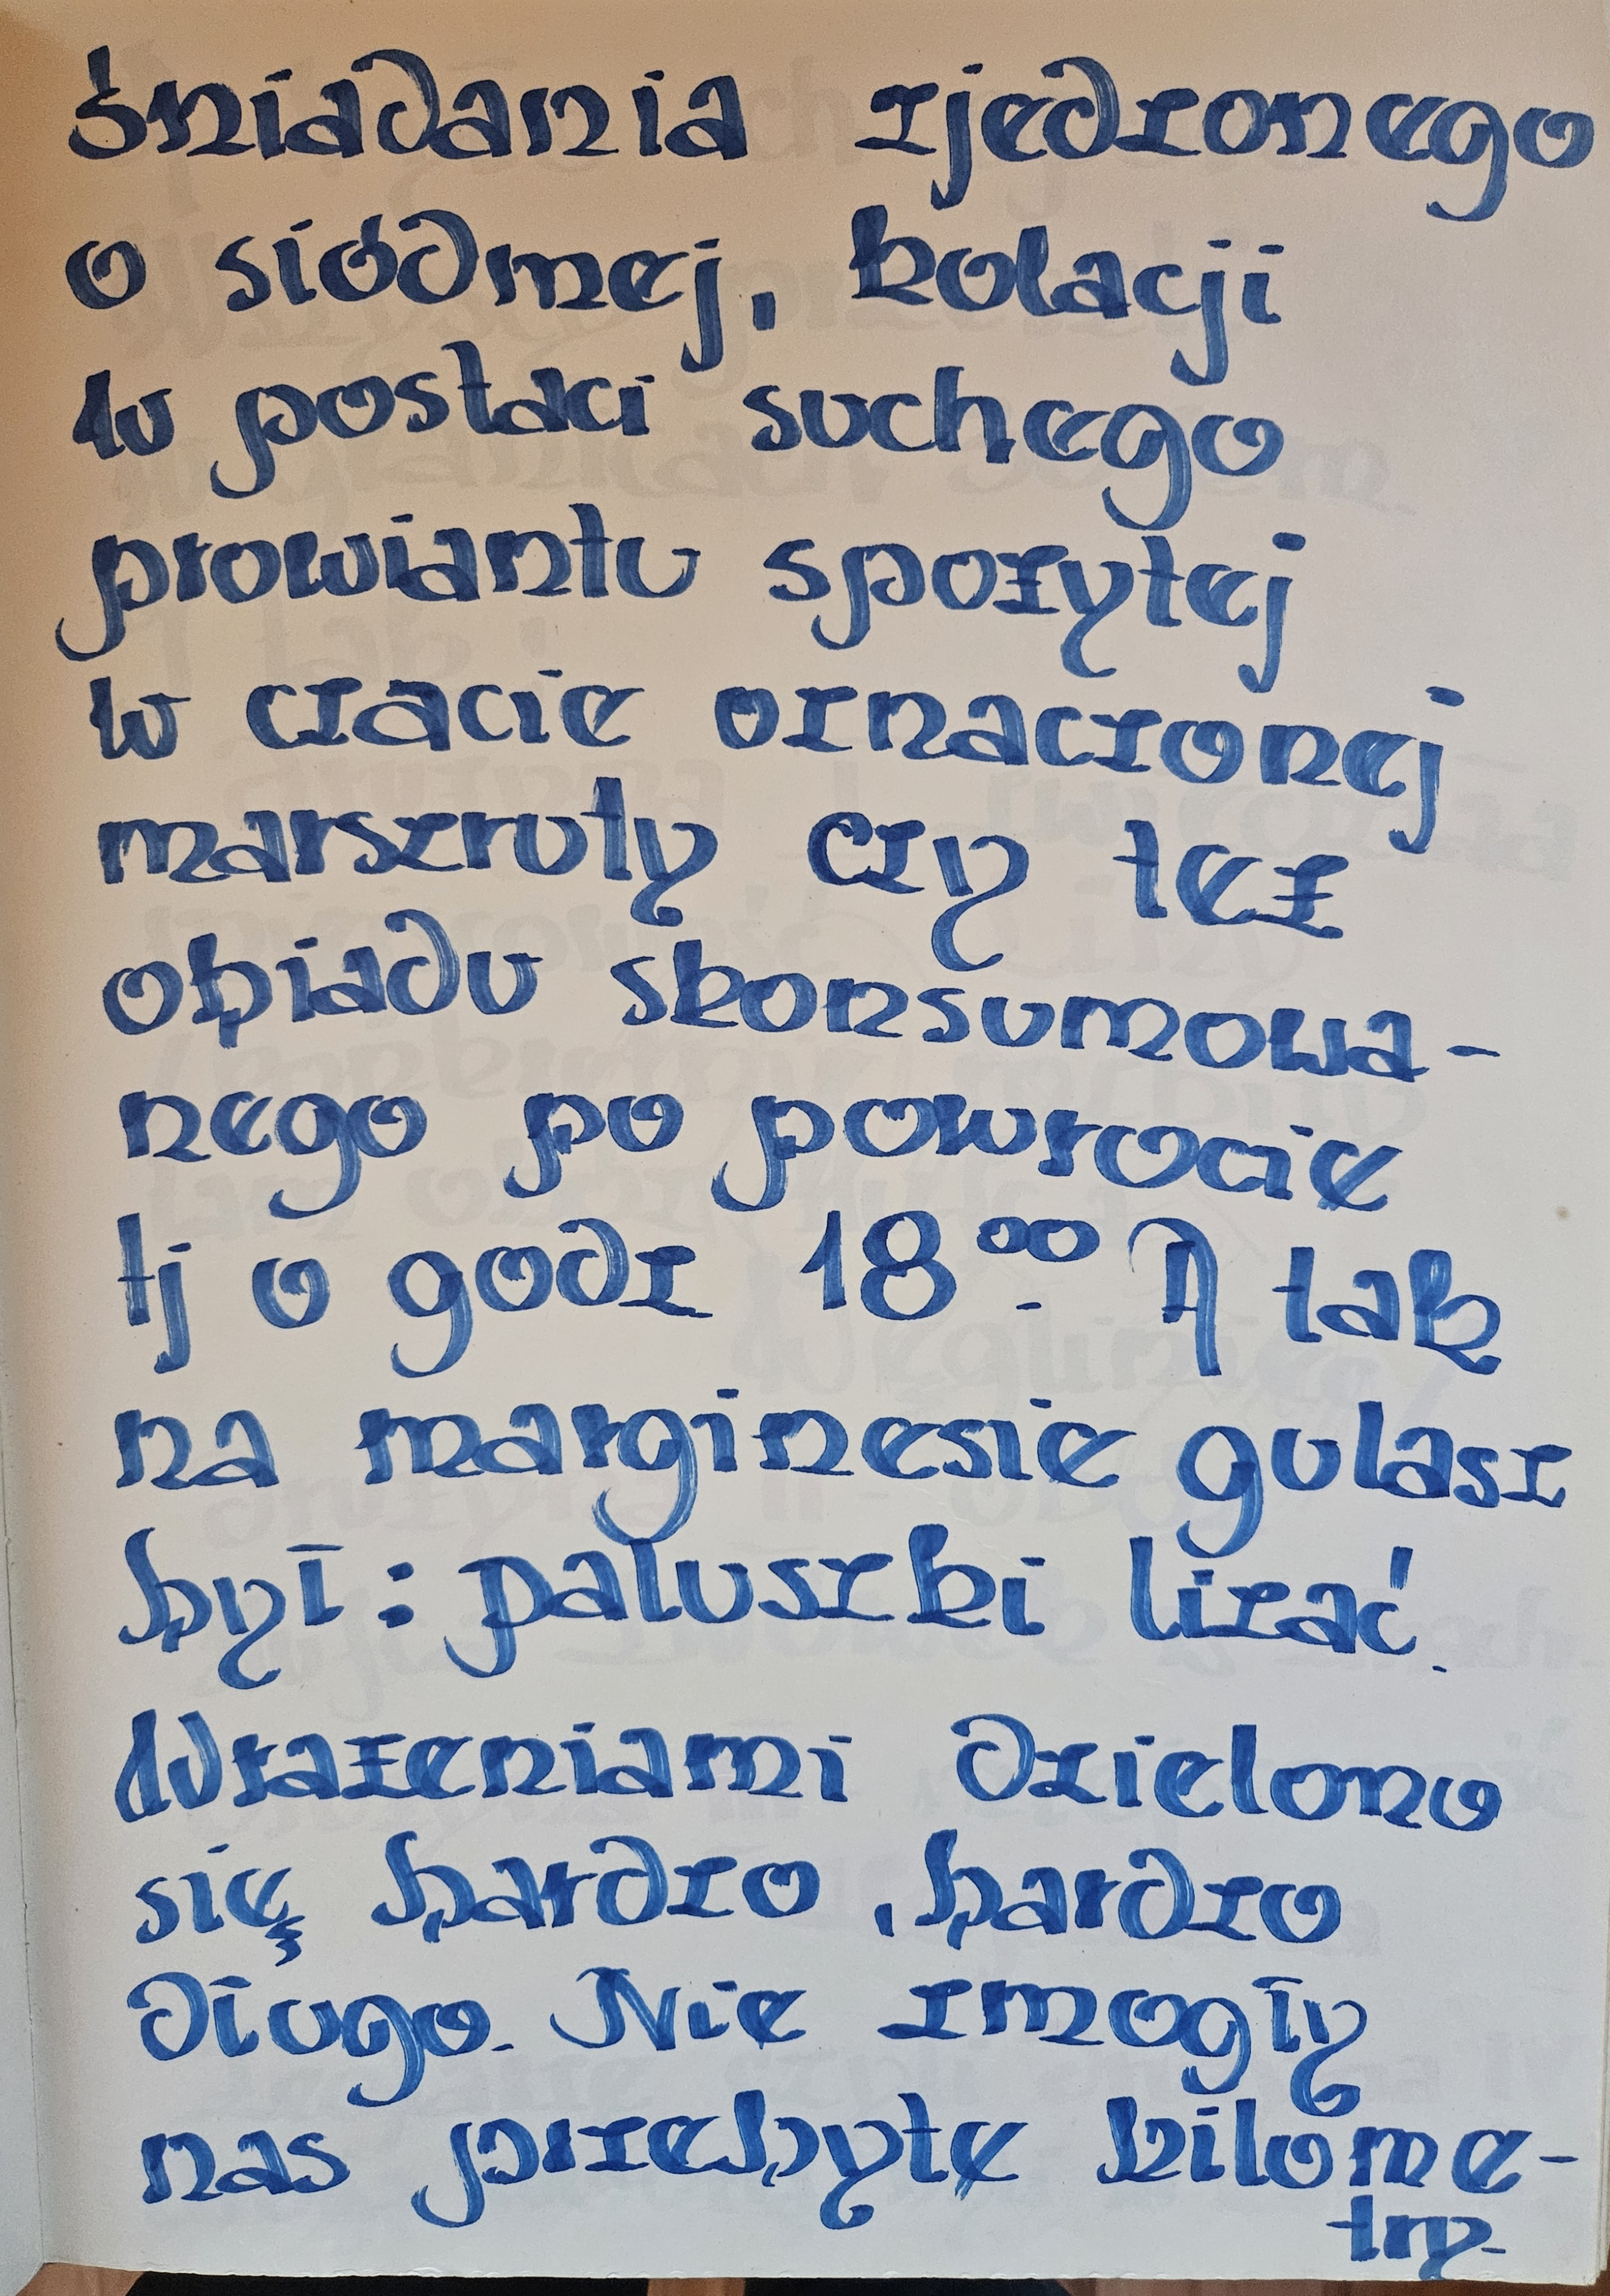 śniadania zjedzonego
o siódmej, kolacji
w postaci suchego
prowiantu spożytej
w czacie oznaczonej
marszruty czy też
obiadu skonsumowa-
nego po powrocie
tj o godz 18⁰⁰. A tak
na marginesie gulasz
był: paluszki lizać.
Wrażeniami dzielono
się bardzo, bardzo
długo. Nie zmogły
nas przebyte kilome-
try.